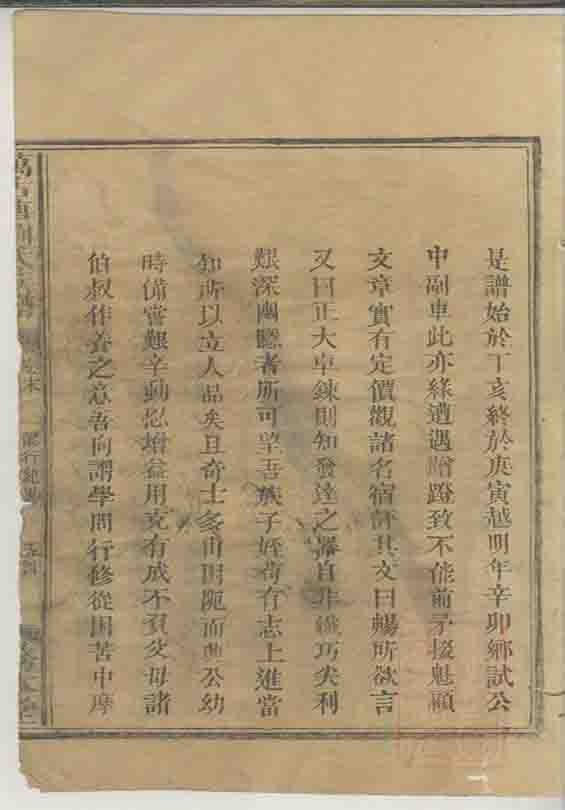 是譜始於丁亥終於庚寅越明年辛卯鄉試公
中副車此亦緣遭遇蹭蹬致不能前矛掇魁顧
文章實有定價觀諸名宿評其文曰暢所欲言
又曰正大卓鍊則知發達之器自非纖巧尖利
艱深幽黯者所可望吾族子姪苟有志上進當
知所以立人品矣且奇士多由困阨而興公幼
時備嘗艱辛動忍增益用克有成不負父母諸
伯叔作養之意吾向謂學問行修從困苦中摩
萬 氏 譜